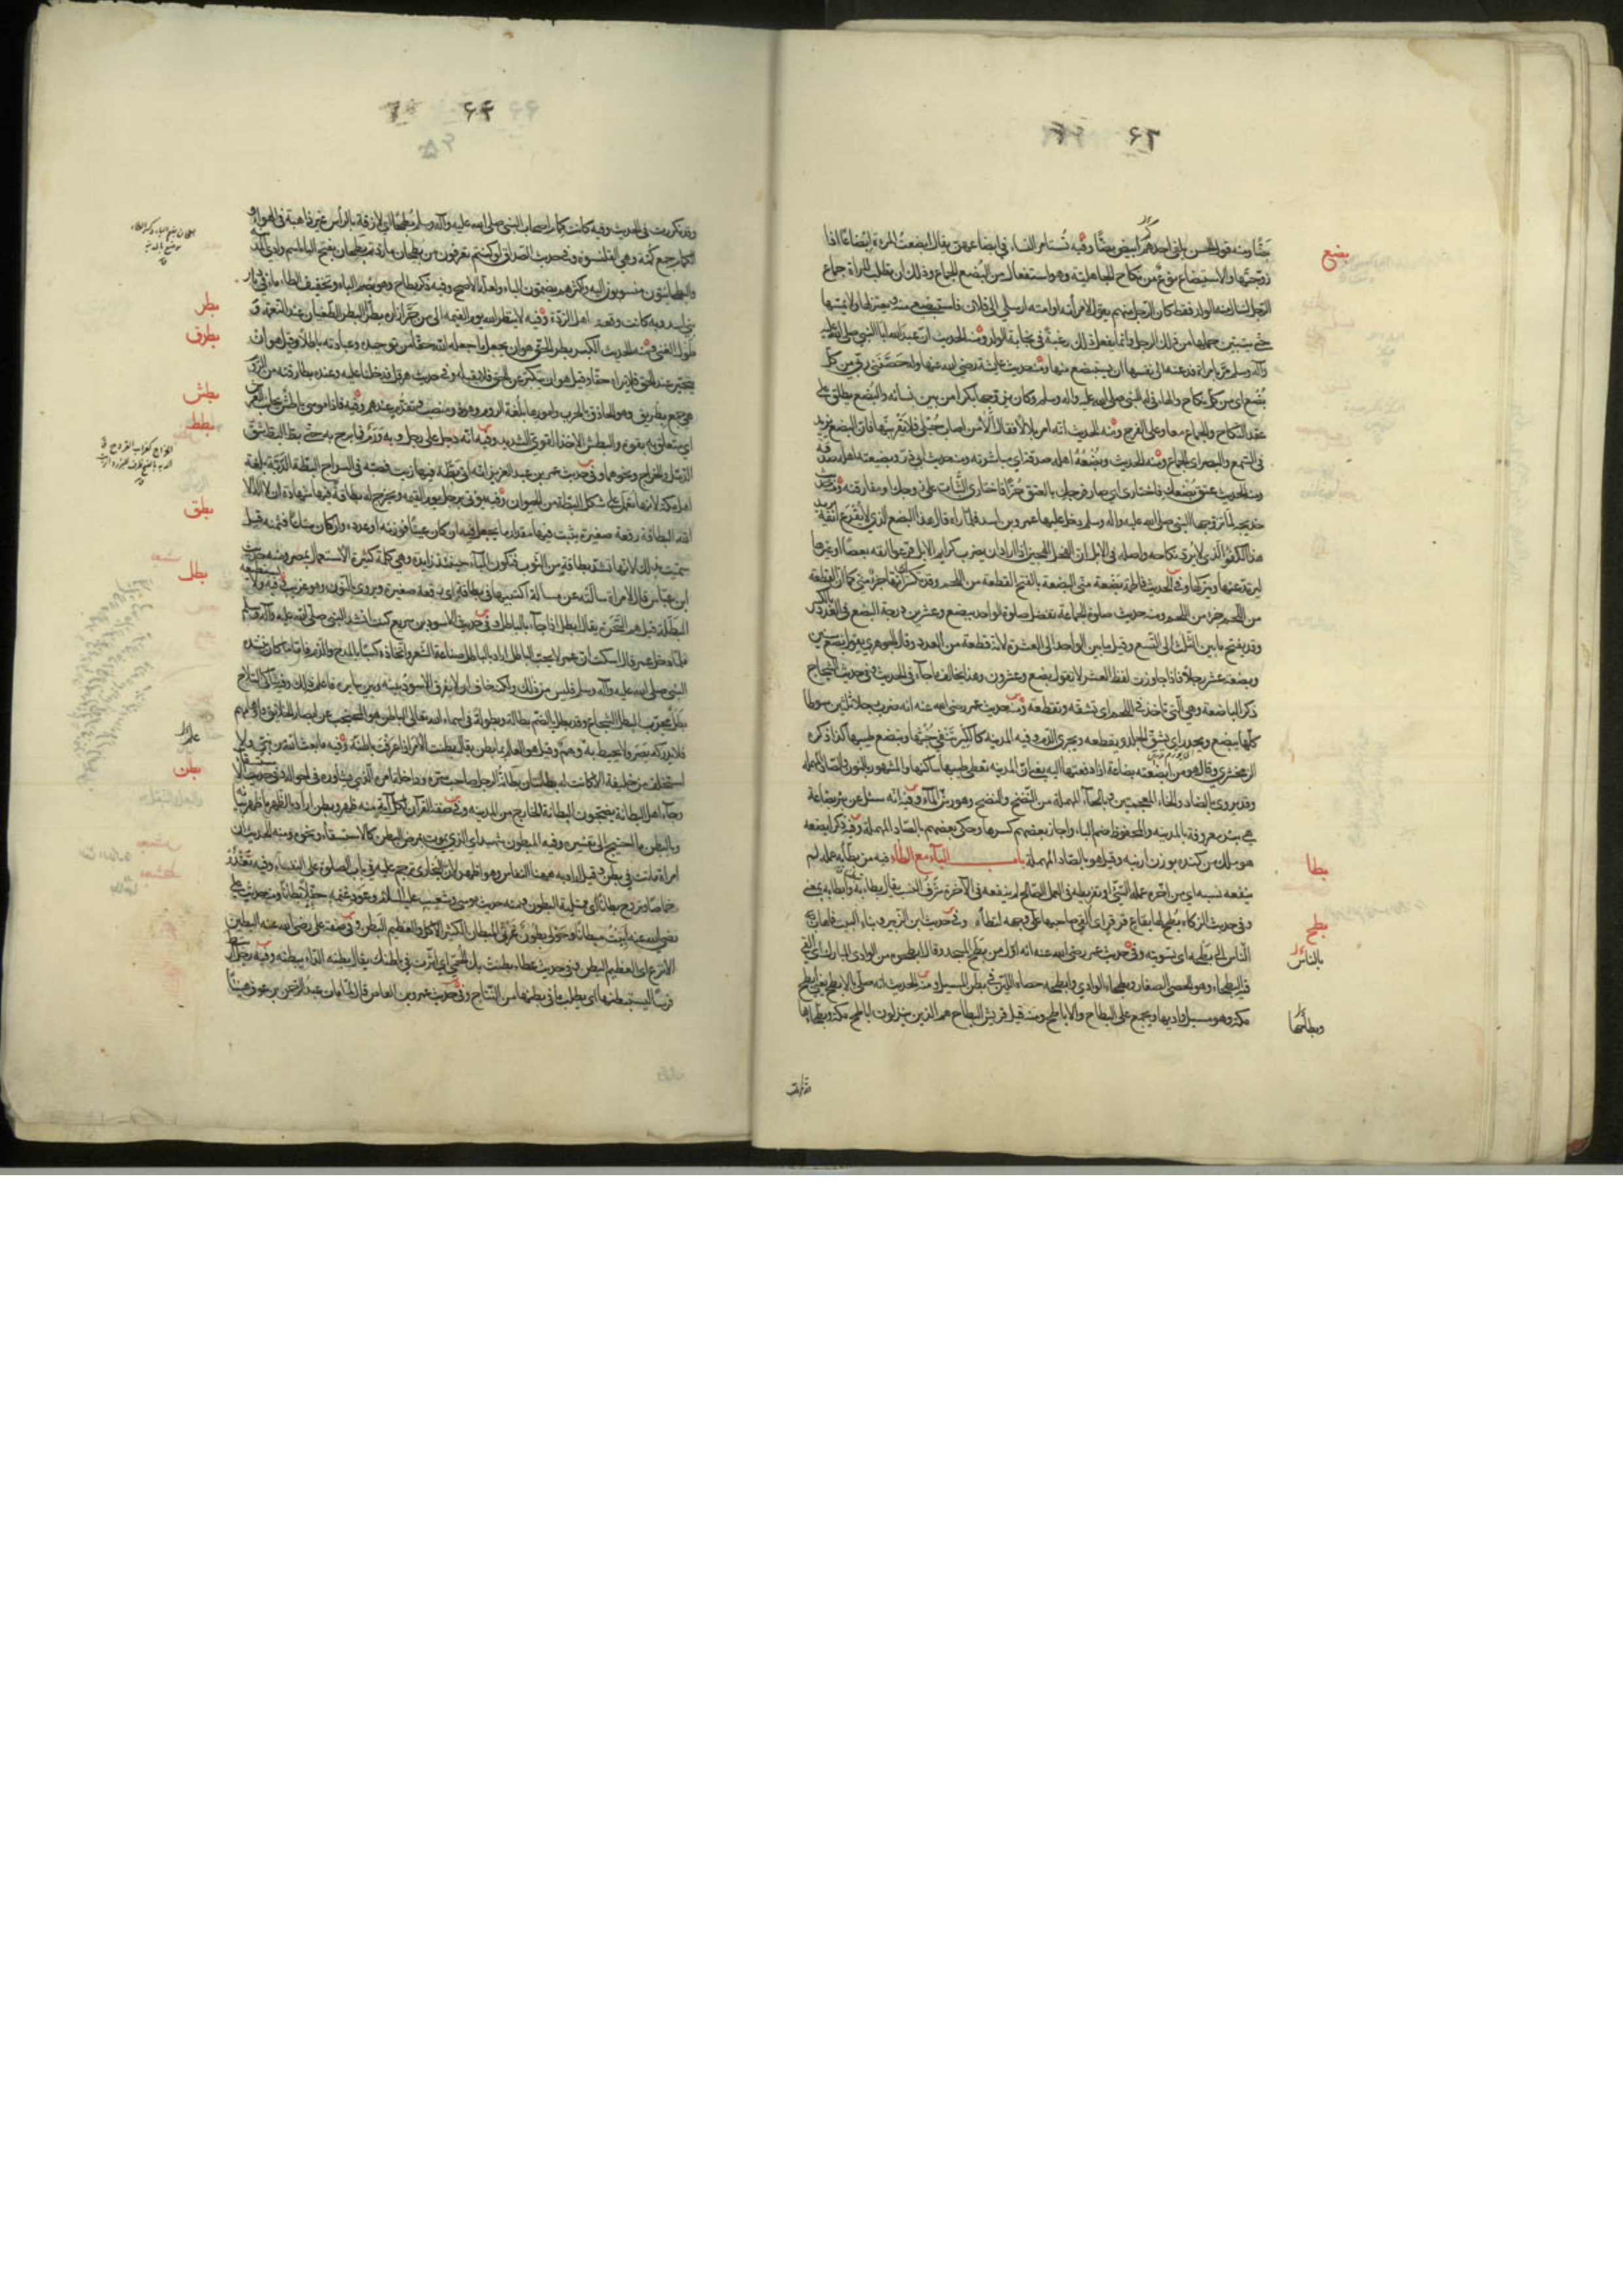 بضع
بضًّا ومنه قول الحسن تلقى احدهم ابيض بضًّا وفيه تُستأمر النساء في ابضاعهن يقال ابضعتُ المرءة ابضاعًا اذا
زوّجتَها والاستبضاع نوعٌ من نكاح الجاهلية وهو استفعال من البُضع الجماع وذلك ان تطلب المرأة جماع
الرجل لتنال منه الولد فقط كان الرجل منهم يقول لامرأته او امته ارسلي الى فلان فاستبضعي منه ويعتزلها ولا يمسّها
حتى يتبين حملها من ذلك الرجل وانما يفعل ذلك رغبةً في نجابة الولد ومنه الحديث ان عبدالله ابا النبي صلى الله عليه
وآله وسلم مرّ بامراة فدعته الى نفسها ان يستبضع منها ومنه حديث عايشة رضي الله عنها وله حَصَّنَني ربّي من كل
بُضع اي من كل نكاح والهاء في له للنبي صلى الله عليه واله وسلم وكان تزوجها بكرا من بين نسائه والبُضع يطلق على
عقد النكاح والجماع معا وعلى الفرج ومنه الحديث انه امر بلالا فقال ألا من اصاب حُبْلى فلا يَقْرَبنّها فان البضع يزيد
في السمع والبصر اي الجماع ومنه الحديث وبُضْعُهُ اهله صدقة اي مباشرته ومنه حديث ابي ذر وبضيعته اهله صدقة
ومنه الحديث عتق بُضعك فاختاري اي صار فرجك بالعتق حُرًّا فاختاري الثبات على زوجك او مفارقته ومنه حديث
خديجة لما تزوجها النبي صلى الله عليه واله وسلم دخل عليها عمرو بن اسد فلما رآه قال هذا البضع الذي لا يُقْرَع انفُه يريد
هذا الكفوُ الذي لا يُردّ نكاحه واصله في الابل ان الفحل الهجين اذا اراد ان يضرب كرايم الابل قرعوا انفه بعصا او غيرها
ليرتد عنها ويتركها وفي الحديث فاطمة بَضْعة منّي البضعة بالفتح القطعة من اللحم وقد تكسر اي انها جزء مني كما ان القطعة
من اللحم جزء من اللحم ومنه حديث صلوة الجماعة تفضل صلوة الواحد ببضع وعشرين درجة البضع في العدد بالكسر
وقد يفتح ما بين الثلث الى التسع وقيل ما بين الواحد الى العشرة لانه قطعة من العدد وقال الجوهري يقول بضع سنين
وبضعة عشر رجلا فاذا جاوزت لفظ العشر لا يقول بضع وعشرون وهذا يخالف ما جاء في الحديث وفي حديث الشجاج
ذكر الباضعة وهي التي تاخذ في اللحم اي تشقه وتقطعه ومنه حديث عمر رضي الله عنه انه ضرب رجلا ثلثين سوطا
كلّها يبضع ويحدر اي يشق الجلد ويقطعه ويجري الدم وفيه المدينة كالكير تنفي خَبَثها وتبضع طيبها كذا ذكره
الزمخشري وقال هو من ابضعته بضاعة اذا دفعتها اليه يعني ان المدينة تعطي طيبها ساكنها والمشهور بالنون والصاد المهملة
وقد يروى بالضاد والخاء المعجمتين وبالحاء المهملة من النضخ والنضح وهو رشّ الماء وفيه انه سئل عن بئر بضاعة
هي بئر معروفة بالمدينة والمحفوظ ضم الباء واجاز بعضهم كسرها وحكى بعضهم بالصاد المهملة وفيه ذكر ابضعة
هو ملك من كندة بوزن ارنبة وقيل هو بالصاد المهملة باب الباء مع الطاء فيه من بطّأ به عمله لم
بطا
ينفعه نسبه اي من اخره عمله السّيئ او تفريطه في العمل الصّالح لم ينفعه في الآخرة شرَفُ النسب يقال بطّأ به وابطأ به بمعنى
بطح
وفي حديث الزكاة بُطِح لها بقاع قرقر اي القي صاحبها على وجهه لتطأه وفي حديث ابن الزبير وبناء البيت فاهاب
بالناس
النّاس الى بَطْحه اي تسويته وفي حديث عمر رضي الله عنه انه اول من بَطَح المسجد وقال ابطحوه من الوادي المبارك اي القى
فيه البطحاء وهو الحصى الصغار وبطحاء الوادي وابطحه حصاه اللين في بطن المسيل ومنه الحديث انه صلى بالابطح يعني ابطح
مكة وهو مسيل واديها ويجمع على البطاح والاباطح ومنه قيل قريش البطاح هم الذين ينزلون اباطح مكة وبطحاءها
وبطاحها
وقد تكررت في الحديث وفيه كانت كمام اصحاب النبي صلى الله عليه وآله وسلم بُطحًا اي لازقة بالراس غير ذاهبة في الهواء و
الكمام جمع كُمّة وهي القلنسوة وفي حديث الصداق لو كنتم تغرفون من بطحان ما زدتم بطحان بفتح الباء اسم وادي المدينة
والبطحانيون منسوبون اليه واكثرهم يضمون الباء ولعله الاصح وفيه ذكر بطاح وهو بضم الباء وتخفيف الطاء ماء في ديار
بني اسد وبه كانت وقعة اهل الردة وفيه لا ينظر الله يوم القيمة الى من جَرّ ازاره بطرًا البطر الطغيان عند النعمة و
بطر
طول الغنى ومنه الحديث الكبر بطر الحق هو ان يجعل ما جعله الله حقّا من توحيده وعبادته باطلا وقيل هو ان
بطرق
يتجبّر عند الحق فلا يراه حقّا وقيل هو ان يتكبّر عن الحق فلا يقبله وفي حديث هرقل فدخلنا عليه وعنده بطارقته من الروم
هي جمع بطريق وهو الحاذق بالحرب وامورها بلغة الروم وهو ذو منصب وتقدم عندهم وفيه فاذا موسى باطش بجانب العرش
بطش
اي متعلق به بقوة والبطش الاخذ القوي الشديد وفيه انه دخل على رجل وبه وَرَمٌ فما برح به حتى بطّ البط شق
بطط
الدمّل والخراج ونحوهما وفي حديث عمر بن عبد العزيز انه اتى بَطّة فيها زيت فصبّه في السراج البطة الدَبّة بلغة
اهل مكة لانها تُعمل على شكل البطة من الحيوان وفيه يؤتى برجل يوم القيمة وتخرج له بطاقة فيها شهادة ان لا اله الا
بطق
الله البطاقة رقعة صغيرة يثبت فيها مقدار ما يجعل فيه ان كان عينًا فوزنه او عدده وان كان متاعًا فثمنه قيل
سمّيت بذلك لانها تشد بطاقةٍ من الثوب فتكون الباء حينئذ زايدة وهي كلمة كثيرة الاستعمال بمصر ومنه حديث
ابن عباس قال لامراة سالَتْه عن مسالة اكتبيها في بطاقة اي رقعة صغيرة ويروى بالنون وهو غريب وفيه ولا تستطيعه
بطل
البَطَلة قيل هم السَحَرة يقال ابطل اذا جاء بالباطل وفي حديث الاسود بن سريع كنت انشد النبي صلى الله عليه وآله وسلم
فلما دخل عمر قال اسكت ان عمر لا يحبّ الباطل اراد بالباطل صناعة الشعر واتخاذه كسبا بالمدح والذم فاما ما كان ينشده
النبي صلى الله عليه وآله وسلم فليس من ذلك ولكنه خاف ان لا يفرق الاسود بينه وبين سايره فاعلمه ذلك وفيه شاكي السلاح
بَطَلٌ مجرّب البطل الشجاع وقد بطل بالضم بطالة وبطولة في اسماء الله تعالى الباطن هو المحتجب عن ابصار الخلايق واوهامهم
بطن
فلا يدركه بَصَر ولا يحيط به وَهم وقيل هو العالم بما بطن يقال بطنت الامر اذا عرفت باطنه وفيه ما بعث الله من نبي ولا
استخلف من خليفة الا كانت له بطانتان بِطانةُ الرجل صاحب سره وداخلة امره الذي يشاوره في احواله وفي حديث الاستسقاء
وجاء اهل البطانة يضجون البطانة الخارج من المدينة وفي صفة القرآن لكل آية منه ظهر وبطن اراد بالظهر ما ظهر بيانه
وبالبطن ما احتيج الى تفسيره وفيه المبطون شهيد اي الذي يموت بمرض البطن كالاستسقاء ونحوه ومنه الحديث ان
امراة ماتت في بطن وقيل اراد به ههنا النفاس وهو اظهر لان البخاري ترجم عليه في باب الصلوة على النفساء وفيه تغدو
خماصًا وتروح بطانًا اي ممتلية البطون ومنه حديث موسى وشعيب عليهما السلام وعَوْد غنمه حفّلا بطانًا ومنه حديث علي
رضي الله عنه أبيتُ مِبطانًا وحولي بطونٌ غَرْثى المبطان الكثير الاكل والعظيم البطن وفي صفة علي رضي الله عنه البطين
الانزع اي العظيم البطن وفي حديث عطاء بطنت بك الحُمّى اي اثّرت في باطنك يقال بطنه الداء يبطنه وفيه رجل ارتبط
فرسًا ليستبطنها اي يطلب ما في بطنها من النتاج وفي حديث عمرو بن العاص قال لما مات عبدالرحمن بن عوف هنيئًا